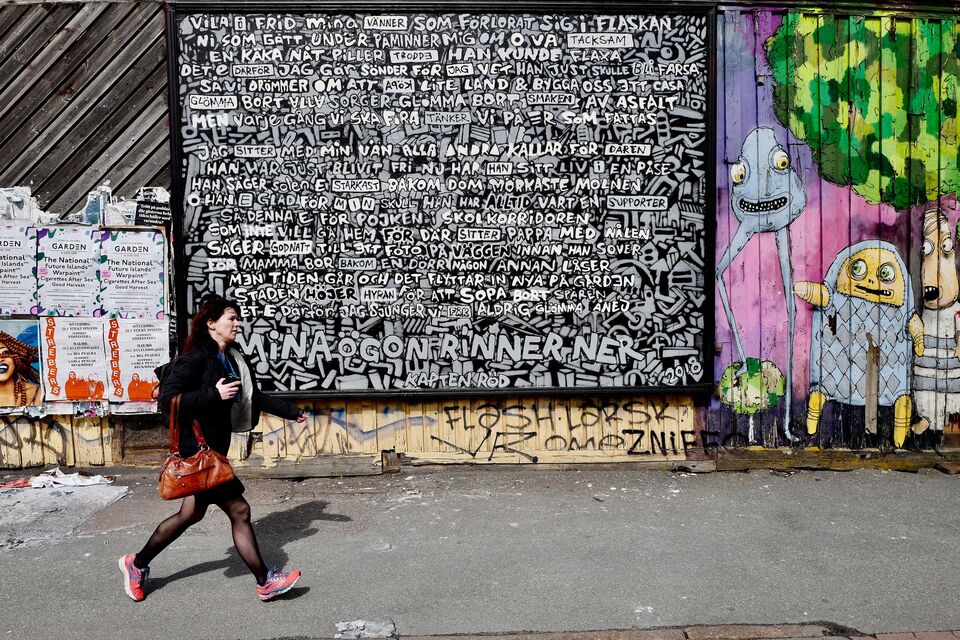 VILA I FRID MINA VÄNNER SOM FÖRLORAT SIG I FLASKAN
NI SOM GÅTT UNDER PÅMINNER MIG OM O'VA TACKSAM
EN KAKA NÅT PILLER TRODDE HAN KUNDE FLAXA
DET E DÄRFÖR JAG GÅR SÖNDER FÖR JAG VET HAN JUST SKULLE BLI FARSA
SÅ VI DRÖMMER OM ATT LITE LAND & BYGGA OSS ETT CASA
GLÖMMA BORT ALLA SORGER GLÖMMA BORT SMAKEN AV ASFALT
MEN VARJE GÅNG VI SKA FIRA TÄNKER VI PÅ ER SOM FATTAS
JAG SITTER MED MIN VÄN ALLA ANDRA KALLAR FÖR DÅREN
HAN VAR JUST BLIVIT FRI NU HAR HAN SITT I EN PÅSE
HAN SÄGER SOLEN E STARKAST BAKOM DOM MÖRKASTE MOLNEN
O HAN E GLAD FÖR MIN SKULL HAN HAR ALLTID VART EN SUPPORTER
SÅ DENNA E FÖR POJKEN I SKOLKORRIDOREN
SOM INTE VILL GÅ HEM FÖR DÄR SITTER PAPPA MED NÅLEN
SÄGER GODNATT TILL ETT FOTO PÅ VÄGGEN INNAN HAN SOVER
FÖR MAMMA BOR BAKOM EN DÖRR NÅGON ANNAN LÅSER
MEN TIDEN GÅR OCH DET FLYTTAR IN NYA PÅ GÅRDEN
STADEN HÖJER HYRAN FÖR ATT SOPA BORT SPÅREN
DET E DÄRFÖR JAG SJUNGER VI FÅR ALDRIG GLÖMMA ANEJ
MINA ÖGON RINNER NER
KAPTEN RÖD
2018
FLÄSH LARSK
ZNIFF
GARDEN
The National
Future Islands
Warpaint
Cigarettes After Sex
Good Harvest
GARDEN
The National
Future Islands
Warpaint
Cigarettes After Sex
Good Harvest
STREBERS
STREBERS